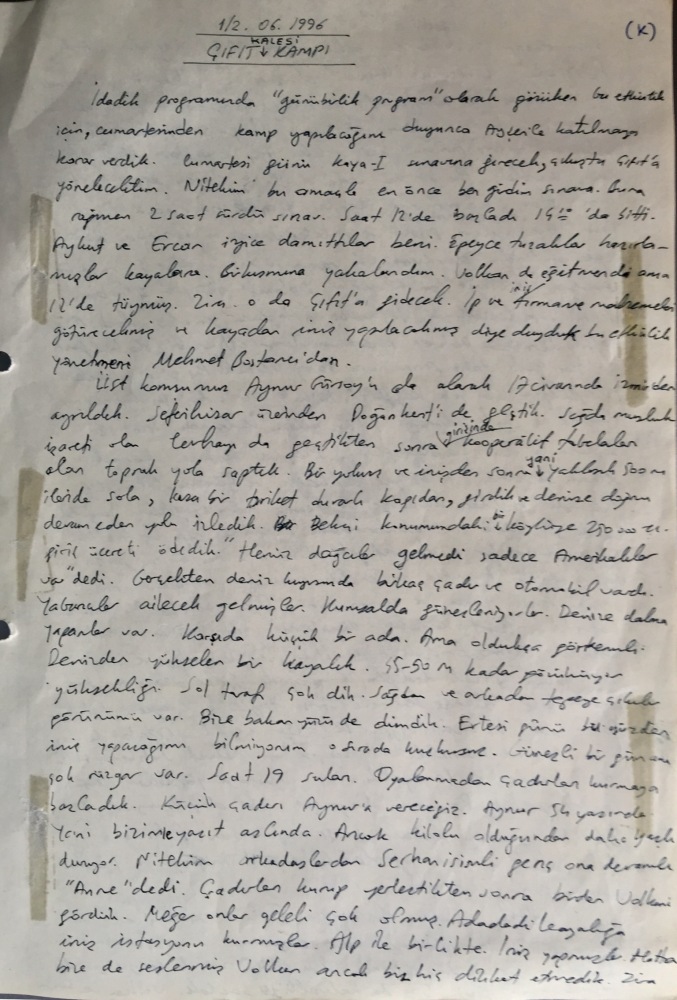 1/2. 06. 1996
(K)
KALESİ
ÇIFIT↓ KAMPI
İdadik programında "günübirlik program" olarak görüken bu etkinlik
için, cumartesinden kamp yapılacağını duyunca Ayşe'ile katılmaya
karar verdik. Cumartesi günü kaya-I sınavına girecek, çıkışta Çıfıt'a
yönelecektim. Nitekim bu amaçla en önce ben girdim sınava. Buna
rağmen 2 saat sürdü sınav. Saat 12'de başladı 'da bitti.
Aykut ve Ercan iyice damıttılar beni. Epeyce tuzaklar hazırla-
mışlar kayalara. Bir kısmına yakalandım. Volkan da eğitmendi ama
12'de tüymüş. Zira o da Çıfıt'a gidecek. İp ve iniş tırmanış malzemeleri
götürecekmiş ve kayadan iniş yapılacakmış diye duyduk bu etkinlik
yönetmeni Mehmet Bostancı'dan.
Üst komşumuz Aynur Gürsoy'u da alarak 17 civarında İzmir'den
ayrıldık. Seferihisar üzerinden Doğankent'i de geçtik. Sağda musluk
işareti olan levhayı da geçtikten sonra↓ girişinde kooperatif tabelaları
olan toprak yola saptık. Bir yokuş ve inişden sonra↓ yani yaklaşık 500 m
ileride sola, kısa bir briket duvarlı kapıdan, girdik ve denize doğru
devam eden yolu izledik. Bekçi konumundaki bir köylüye 250 000 TL
giriş ücreti ödedik. "Henüz dağcılar gelmedi sadece Amerikalılar
var" dedi. Gerçekten deniz kıyısında birkaç çadır ve otomobil vardı.
Yabancılar ailecek gelmişler. Kumsalda güneşleniyorlar. Denize dalma
yapanlar var. Karşıda küçük bir ada. Ama oldukça görkemli.
Denizden yükselen bir kayalık. 45-50 m kadar görünüyor
yüksekliği. Sol taraf çok dik. Sağdan ve arkadan tepeye çıkılır
görünümü var. Bize bakan yüzü de dimdik. Ertesi günü bu yüzden
iniş yapacağımı bilmiyorum o sırada kuşkusuz. Güneşli bir gün ama
çok rüzgar var. Saat 19 suları. Oyalanmadan çadırları kurmaya
başladık. Küçük çadırı Aynur'a vereceğiz. Aynur 54 yaşında.
Yani bizimle yaşıt aslında. Ancak kilolu olduğundan daha yaşlı
duruyor. Nitekim arkadaşlardan Serhan isimli genç ona devamlı
"Anne" dedi. Çadırları kurup yerleştikten sonra birden Volkan'ı
gördük. Meğer onlar geleli çok olmuş. Adadaki kayalığa
iniş istasyonu kurmuşlar. Alp ile birlikte. İniş yapmışlar. Hatta
bize de seslenmiş Volkan ancak biz hiç dikkat etmedik. Zira